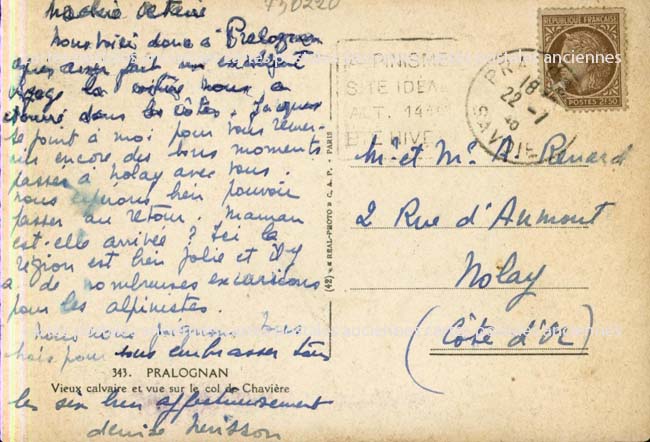 730220
Nous voici donc à Pralognan
après avoir fait un excellent
voyage la voiture nous a
étonné dans les côtes. Jacques
se joint à moi pour vous remer-
cier encore des bons moments
passer à Nolay avec vous.
nous espérons bien pouvoir
passer au retour. Maman
est-elle arrivée ? Ici la
région est bien jolie et il y
a de nombreuses excursions
pour les alpinistes.
Nous nous joignons tous
trois pour vous embrasser tous
les six bien affectueusement
denise
343. PRALOGNAN
Vieux calvaire et vue sur le col de Chavière
(42) « REAL-PHOTO » C. A. P. - PARIS
PINISME
SITE IDEAL
ALT. 14
ETE HIVE
18
22 - 7
SAVOIE
REPUBLIQUE FRANÇAISE
POSTES 2F50
Mr et Me A. Renard
2 Rue d'Aumont
Nolay
(Côte d'Or)
anciennes